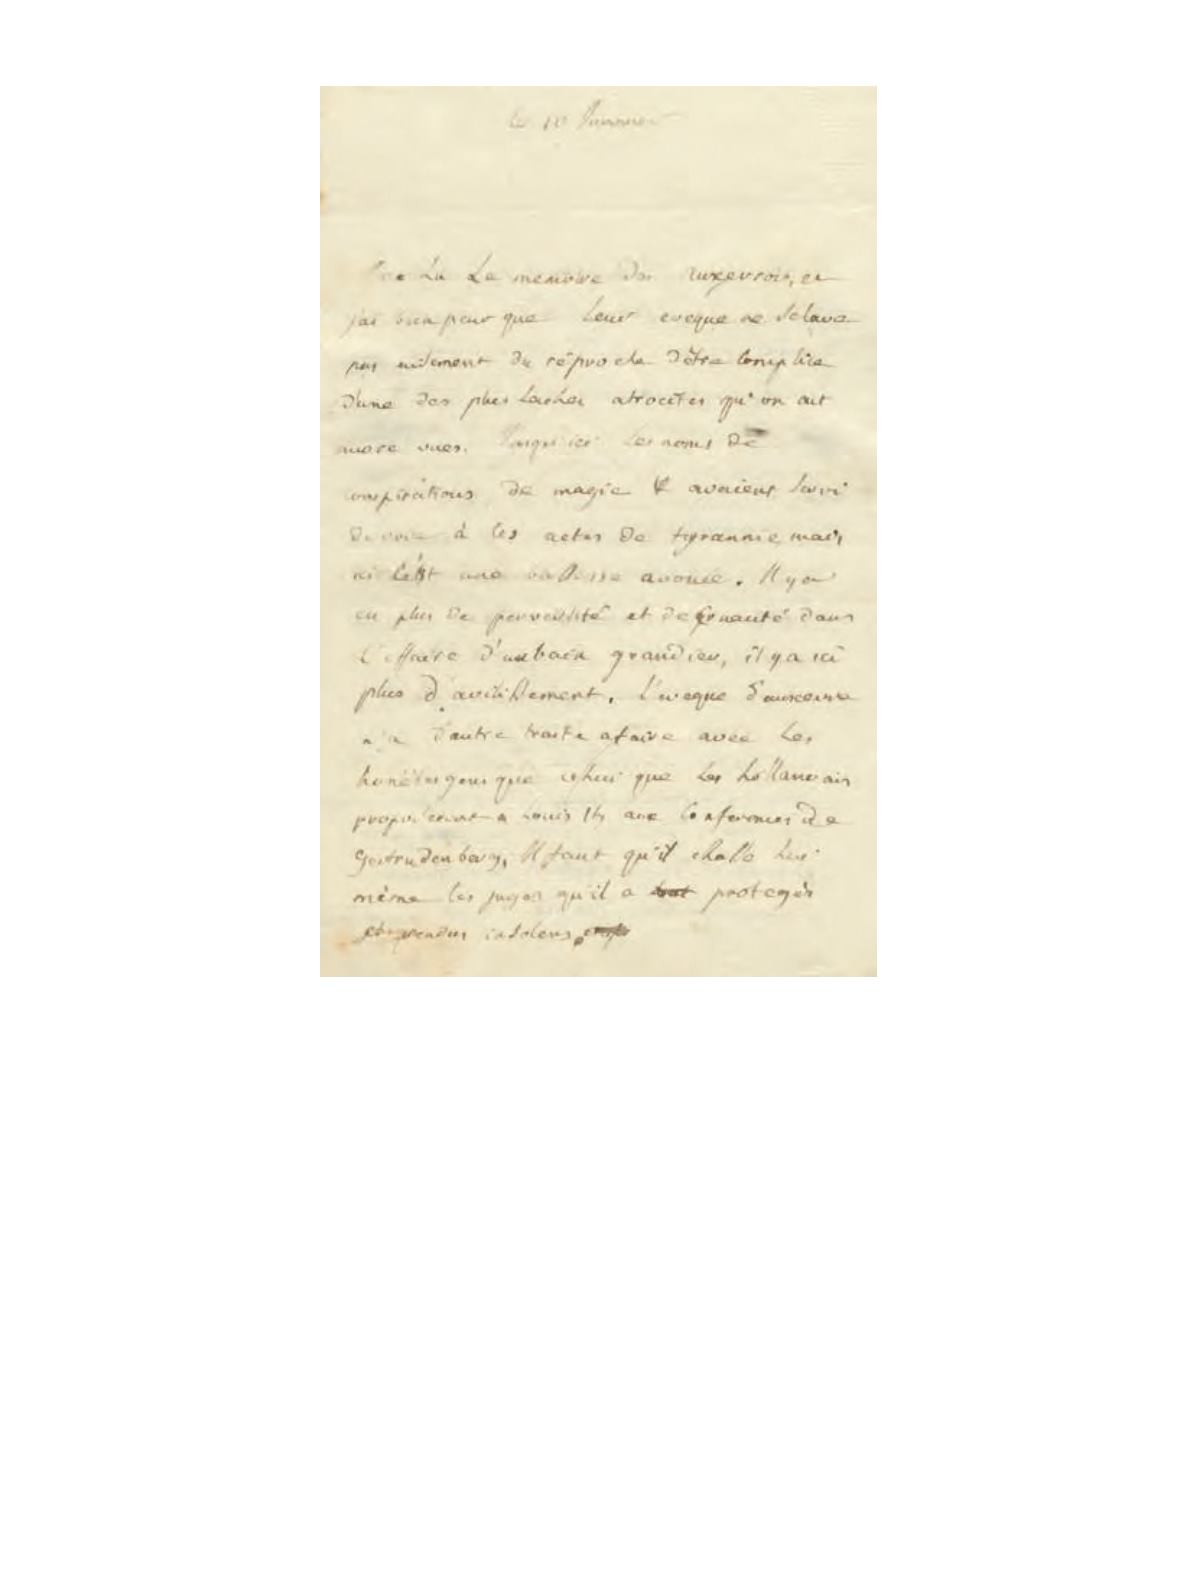 le 10 Janvier
lu Le memoire des auxerrois, et
j'ai bien peur que Leur eveque ne Selave
pas aisement du réproche d'être Complice
d'une des plus Laches atrocites qu'on ait
encore vues. Jusqu'ici Les noms de
conspirations de magie & avaient Servi
de voile à les actes de tyrannie, mais
ici C'est une bassesse avouée. Il ya
eu plus de perversité et de Cruauté dans
L'affaire d'urbain grandier, il ya ici
plus d'avilissement. L'eveque d'auxerre
n'a d'autre traité afaire avec Les
honêtes gens que celui que Les hollandais
proposerent a Louis 14 aux Conferences de
Gertrudenberg, Il faut qu'il chasse lui
même les juges qu'il a protegés
et rendus insolens.